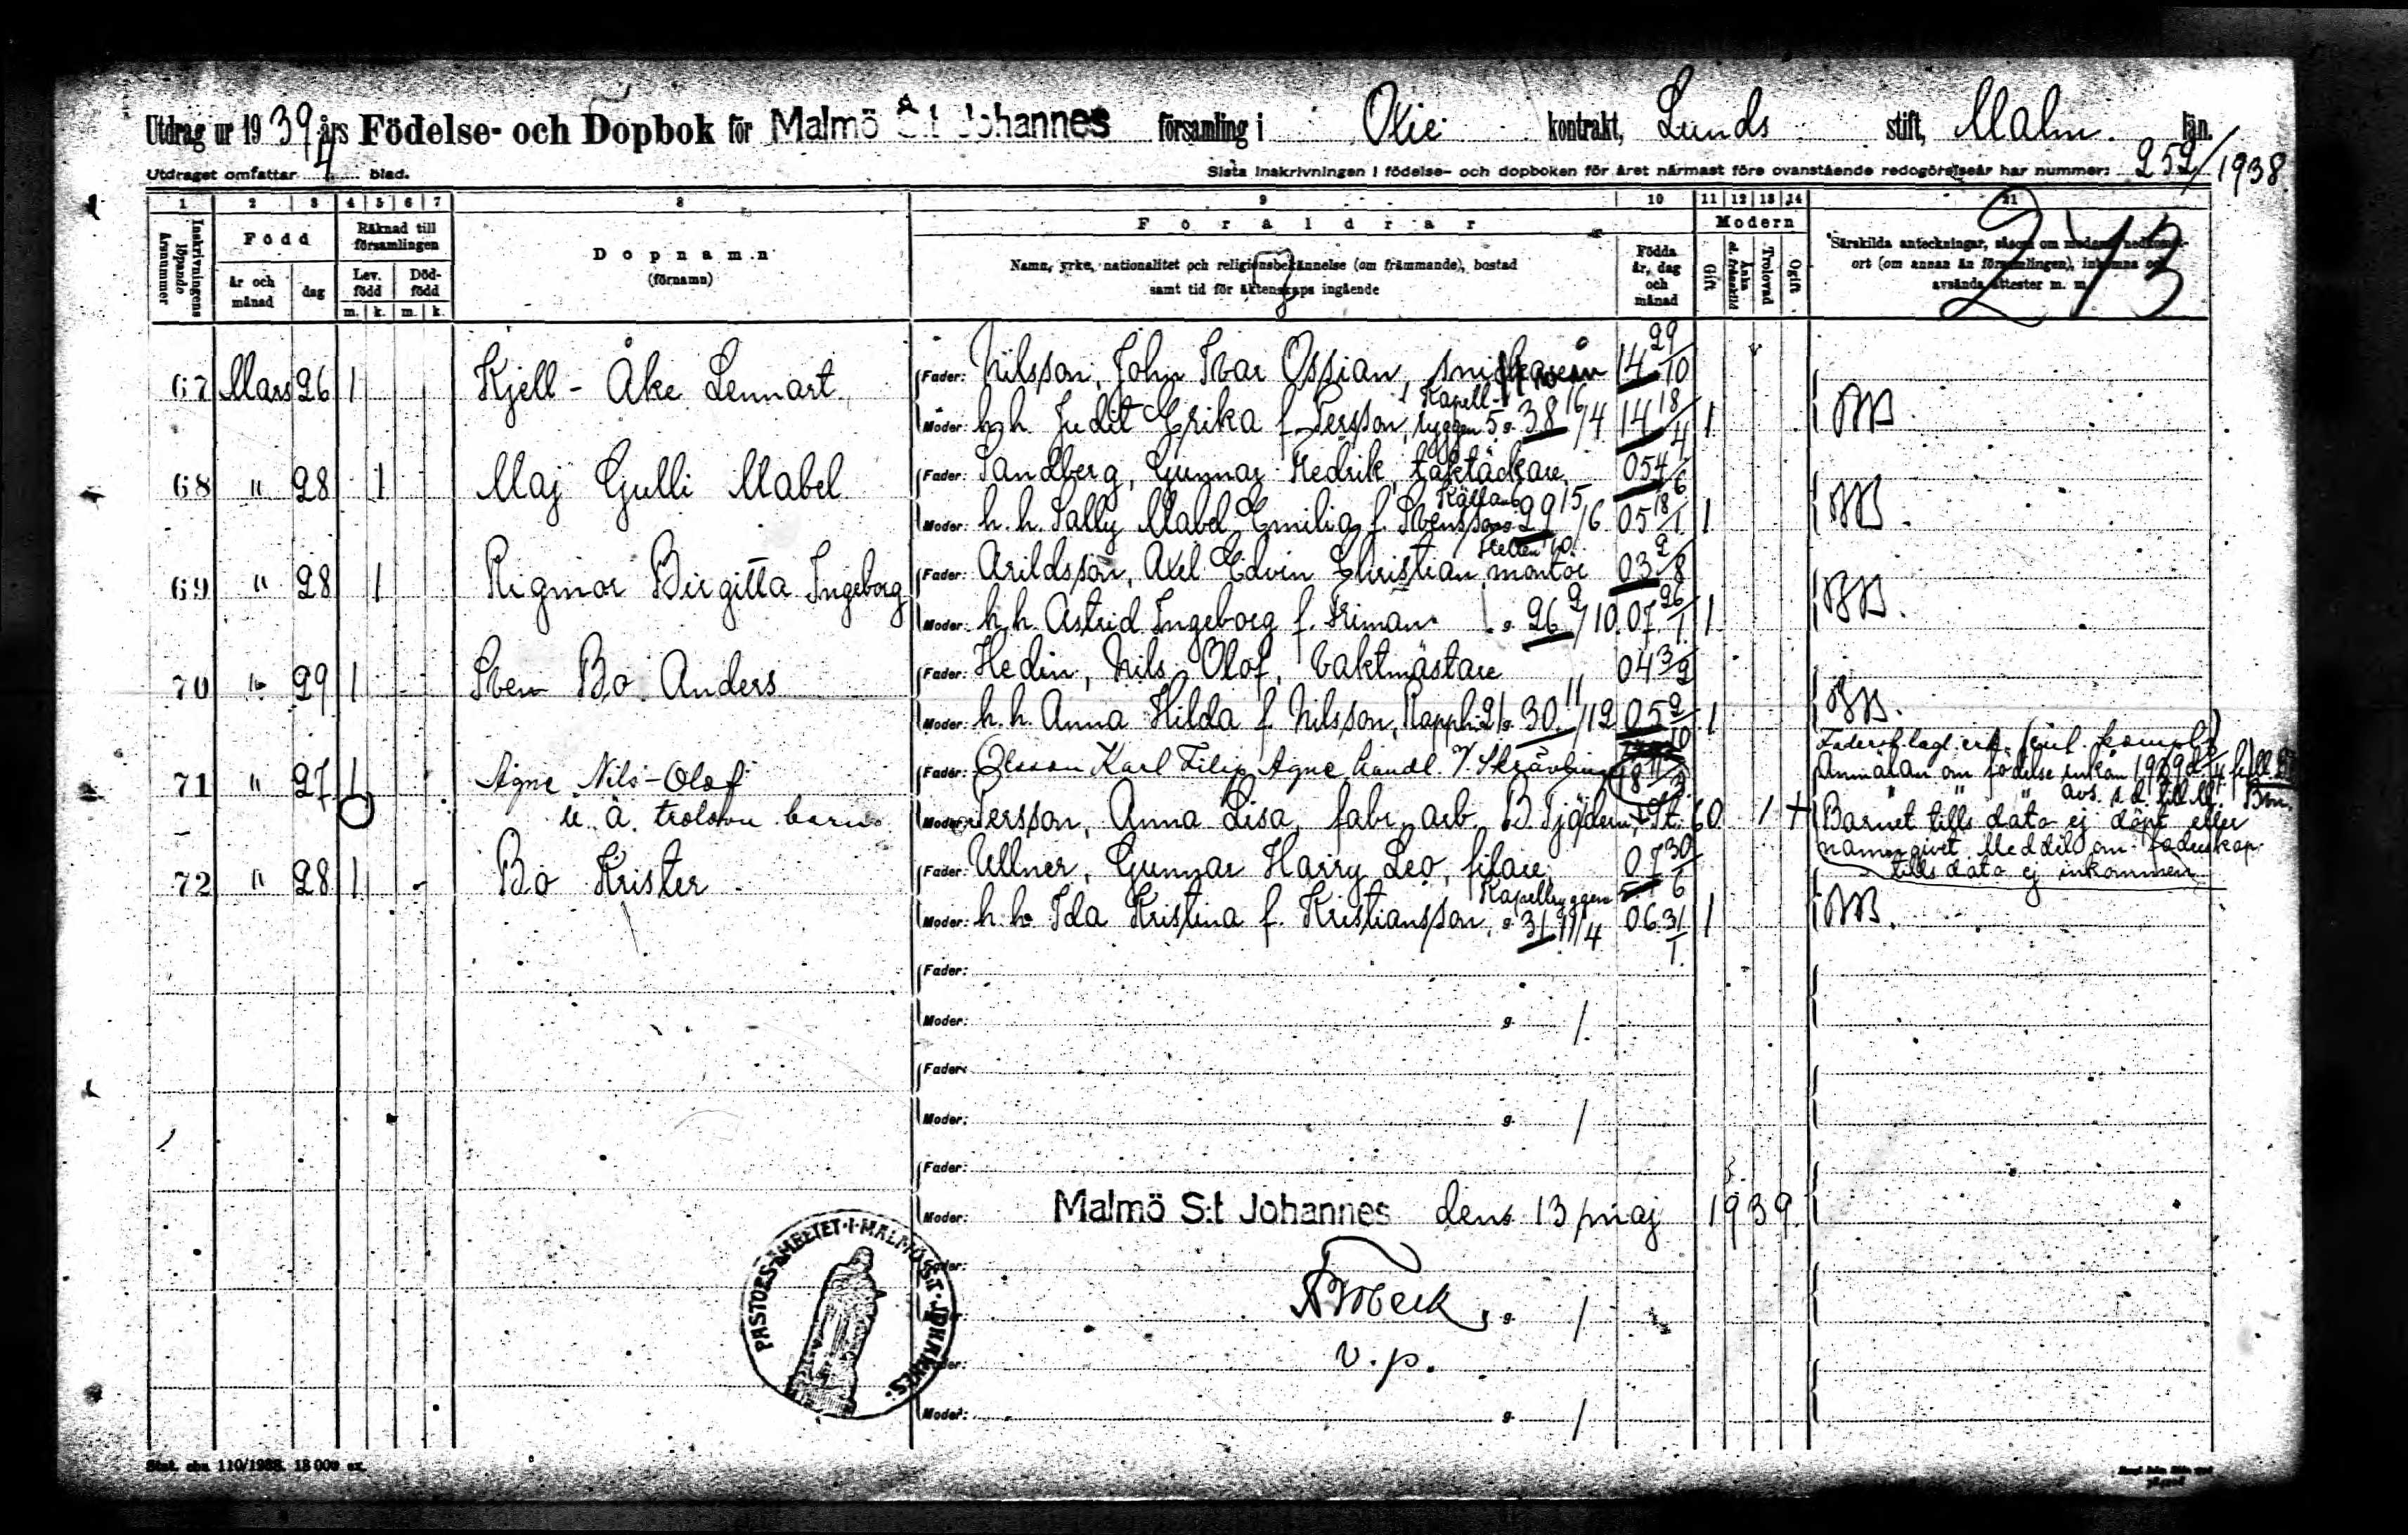 Utdrag ur 1939 års Födelse- och Dopbok för Malmö S:t Johannes församling i Oxie kontrakt, Lunds stift, Malm. län.
Utdraget omfattar 4 blad. Sista inskrivningen i födelse- och dopboken för året närmast före ovanstående redogörelseår har nummer: 252/1938
1 2 3 4 5 6 7 8 9 10 11 12 13 14 21
Inskrivningens löpande årsnummer
Född
år och månad
dag
Räknad till församlingen
Lev. född
Död-född
m. k. m. k.
Dopnamn
(förnamn)
Föräldrar
Namn, yrke, nationalitet och religionsbekännelse (om främmande), bostad
samt tid för äktenskaps ingående
Födda år, dag och månad
Modern
Gift
Änka el. frånskild
Trolovad
Ogift
Särskilda anteckningar, såsom om moderns nedkomst-
ort (om annan än församlingen), inkomna och
avsända attester m. m.
213
67 Mars 26 1 Kjell-Åke Lennart
Fader: Nilsson, John Ivar Ossian, 14 29/10
Kapell-
Moder: h. h. Judit Erika f. Persson, ryggen 5 g. 38 16/4 14 18/4 1
68 " 28 1 Maj Gulli Mabel
Fader: Sandberg, Gunnar Fredrik, taktäckare 05 4/6
Moder: h. h. Sally Mabel Emilia f. Svensson g. 29 15/6 05 18/1 1
69 " 28 1 Rigmor Birgitta Ingeborg
Fader: Arildsson, Axel Edvin Christian, montör 03 2/8
Moder: h. h. Astrid Ingeborg f. Friman g. 26 2/10 07 26/1 1
70 " 29 1 Sven Bo Anders
Fader: Hedin, Nils Olof, vaktmästare 04 3/2
Moder: h. h. Anna Hilda f. Nilsson, g. 30 11/12 05 2/10 1
71 " 27 1 Agne Nils-Olof
u. ä. trolovn barn
Fader: Olsson Karl Filip Agne handl.
Moder: Persson, Anna Lisa, fabr. arb. 1
Anmälan om födelse inkom 1939
Barnet tills dato ej döpt eller
namngivet. Meddel. om faderskap
tills dato ej inkommen
72 " 28 1 Bo Krister
Fader: Ullner, Gunnar Harry Leo, filare 07 30/6
Kapellryggen
Moder: h. h. Ida Kristina f. Kristiansson, g. 31 11/4 06 31/1 1
Fader:
Moder: g. /
Fader:
Moder: g. /
Fader:
Moder: Malmö S:t Johannes den 13 maj 1939.
v. p.
Moder: g. /
PASTORSÄMBETET · I · MALMÖ S:T · JOHANNES ·